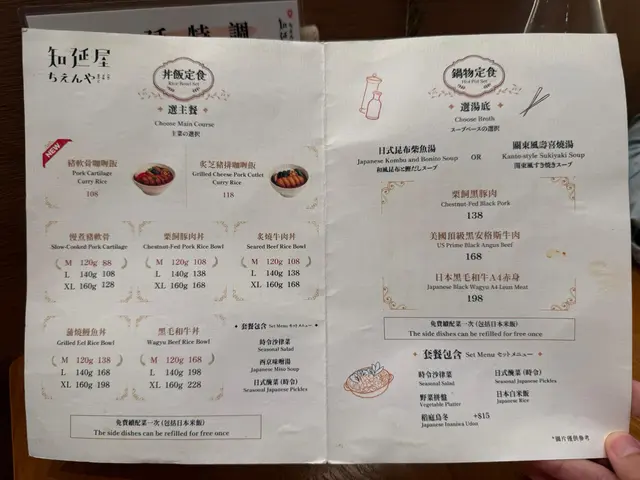 知延屋
ちえんや
丼飯定食
Rice Bowl Set
選主餐
Choose Main Course
主菜の選択
NEW
豬軟骨咖喱飯
Pork Cartilage
Curry Rice
108
炙芝豬排咖喱飯
Grilled Cheese Pork Cutlet
Curry Rice
118
慢煮豬軟骨
Slow-Cooked Pork Cartilage
M 120g 88
L 140g 108
XL 160g 128
栗飼豚肉丼
Chestnut-Fed Pork Rice Bowl
M 120g 108
L 140g 138
XL 160g 168
炙燒牛肉丼
Seared Beef Rice Bowl
M 120g 108
L 140g 138
XL 160g 168
蒲燒鰻魚丼
Grilled Eel Rice Bowl
M 120g 138
L 140g 168
XL 160g 198
黑毛和牛丼
Wagyu Beef Rice Bowl
M 120g 168
L 140g 198
XL 160g 228
套餐包含 Set Menu セットメニュー
時令沙律菜
Seasonal Salad
西京味噌湯
Japanese Miso Soup
日式醃菜 (時令)
Seasonal Japanese Pickles
免費續配菜一次 (包括日本米飯)
The side dishes can be refilled for free once
鍋物定食
Hot Pot Set
選湯底
Choose Broth
スープベースの選択
日式昆布柴魚湯
Japanese Kombu and Bonito Soup
和風昆布と鰹だしスープ
OR
關東風壽喜燒湯
Kanto-style Sukiyaki Soup
関東風すき焼きスープ
栗飼黑豚肉
Chestnut-Fed Black Pork
138
美國頂級黑安格斯牛肉
US Prime Black Angus Beef
168
日本黑毛和牛A4赤身
Japanese Black Wagyu A4 Lean Meat
198
免費續配菜一次 (包括日本米飯)
The side dishes can be refilled for free once
套餐包含 Set Menu セットメニュー
時令沙律菜
Seasonal Salad
日式醃菜 (時令)
Seasonal Japanese Pickles
野菜拼盤
Vegetable Platter
日本白米飯
Japanese Rice
稻庭烏冬 +$15
Japanese Inaniwa Udon
*圖片僅供參考